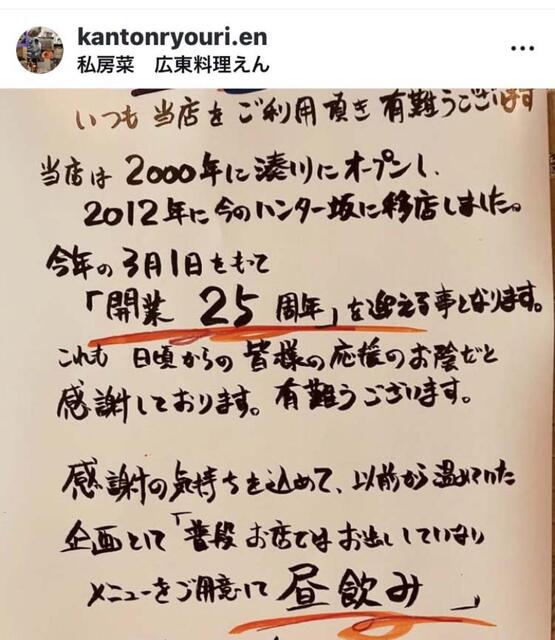 kantonryouri.en
私房菜 広東料理えん
いつも当店をご利用頂き有難うございます
当店は2000年に湊川にオープンし、
2012年に今のハンター坂に移店しました。
今年の3月1日をもって
「開業 25周年」を迎える事となります。
これも日頃からの皆様の応援のお陰だと
感謝しております。有難うございます。
感謝の気持ちを込めて、以前から温めていた
企画として「普段お店ではお出ししていない
メニューをご用意して 昼飲み 」